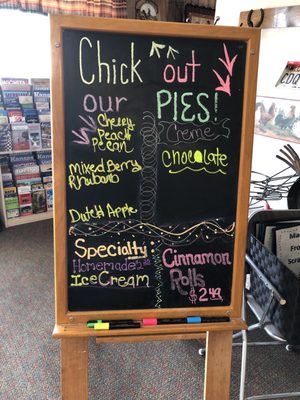 Chick out
our PIES!
Cherry
Peach
Pecan
Mixed Berry
Rhubarb
Dutch Apple
Creme
Chocolate
Specialty:
Homemade
Ice Cream
Cinnamon
Rolls
$2.49